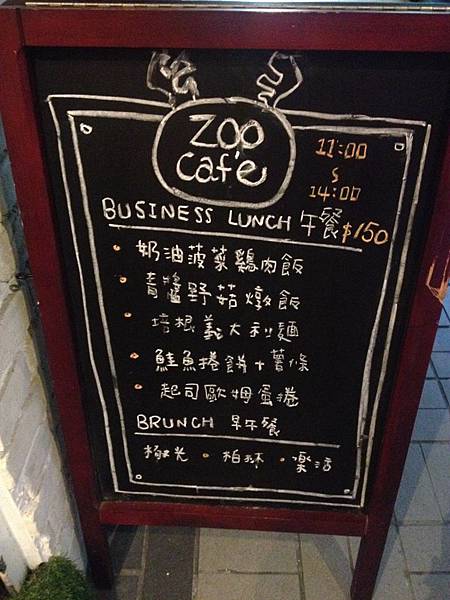 ZOO
café
11:00
〜
14:00
BUSINESS LUNCH 午餐 $150
• 奶油菠菜鷄肉飯
• 青醬野菇燉飯
• 培根義大利麵
• 鮭魚捲餅+薯條
• 起司歐姆蛋捲
BRUNCH 早午餐
極光 • 柏林 • 樂活